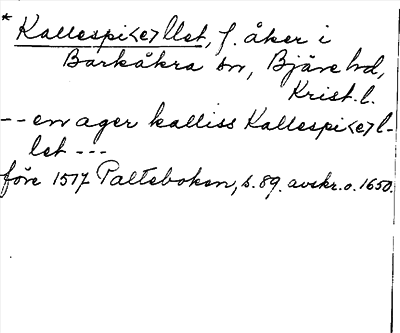 * Kallespi<e>llet, f. åker i
Barkåkra sn, Bjäre hd,
Krist. l.
-- en ager kalliss Kallespi<e>l-
let ---
före 1517 Palteboken, s. 89. avskr. o. 1650.